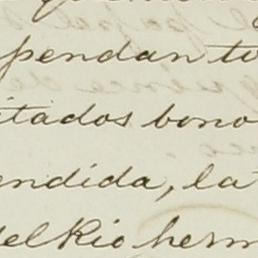 pendan to
itados bono
endida, la
del Rio herm